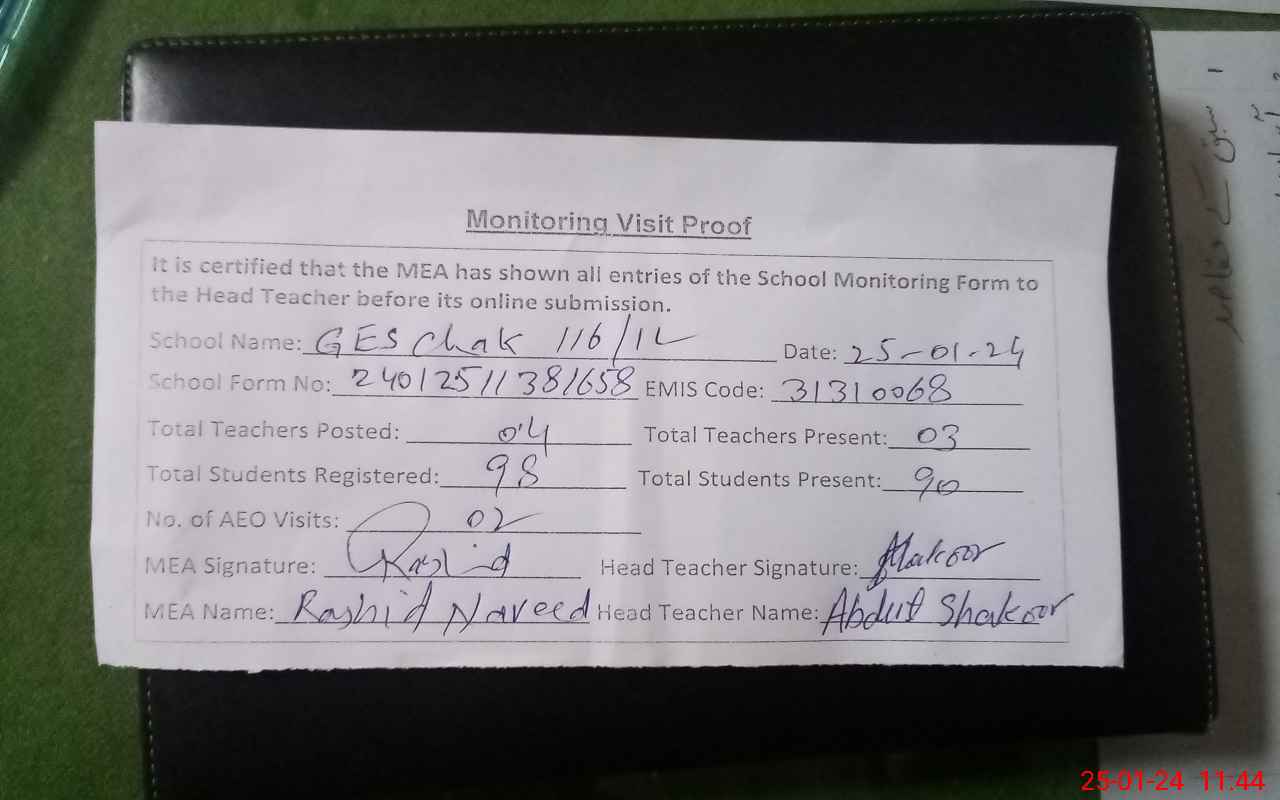 Monitoring Visit Proof
It is certified that the MEA has shown all entries of the School Monitoring Form to
the Head Teacher before its online submission.
School Name: GES Chak 116/12L Date: 25-01-24
School Form No: 24012511381658 EMIS Code: 31310068
Total Teachers Posted: 04 Total Teachers Present: 03
Total Students Registered: 98 Total Students Present: 90
No. of AEO Visits: 02
MEA Signature: Rashid Head Teacher Signature: AShakoor
MEA Name: Rashid Naveed Head Teacher Name: Abdul Shakoor
25-01-24 11.44